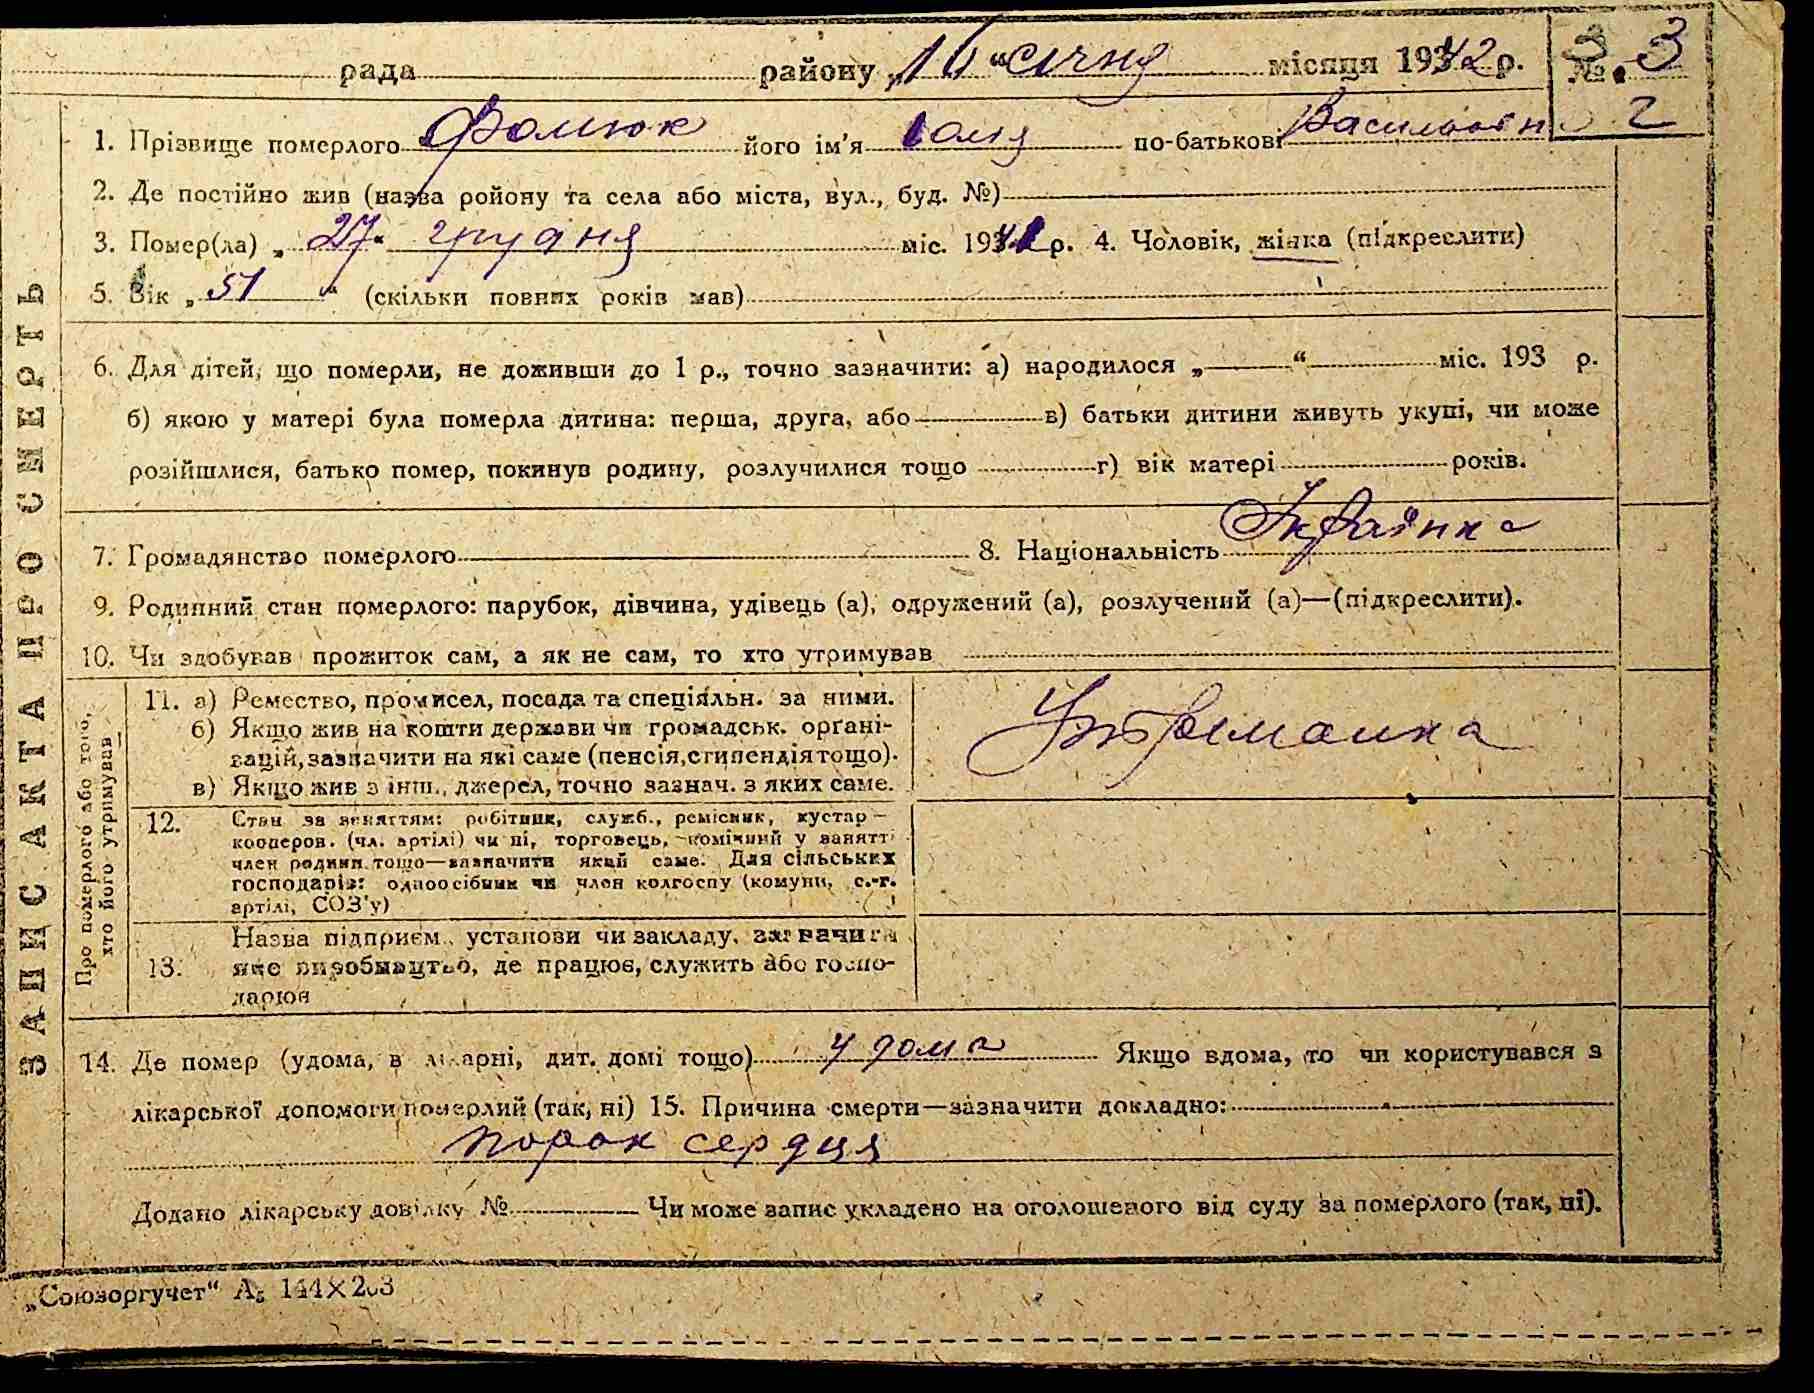 рада району „16“ січня місяця 1942 р. № 3
1. Прізвище померлого Фомюк його ім'я по-батькові Васильовна
2. Де постійно жив (назва ройону та села або міста, вул., буд. №)
3. Помер(ла) „27“ грудня міс. 1941 р. 4. Чоловік, жінка (підкреслити)
5. Вік „51“ (скільки повних років мав)
6. Для дітей, що померли, не доживши до 1 р., точно зазначити: а) народилося „ “ міс. 193 р.
б) якою у матері була померла дитина: перша, друга, або в) батьки дитини живуть укупі, чи може
розійшлися, батько помер, покинув родину, розлучилися тощо г) вік матері років.
7. Громадянство померлого 8. Національність Українка
9. Родинний стан померлого: парубок, дівчина, удівець (а), одружений (а), розлучений (а)—(підкреслити).
10. Чи здобував прожиток сам, а як не сам, то хто утримував
ЗАПИС АКТА ПРО СМЕРТЬ
Про померлого або того, хто його утримував
11. а) Ремество, промисел, посада та спеціяльн. за ними.
б) Якщо жив на кошти держави чи громадськ. орґані-
зацій, зазначити на які саме (пенсія, стипендія тощо).
в) Якщо жив з інш., джерел, точно зазнач. з яких саме.
Утриманка
12. Стан за заняттям: робітник, служб., ремісник, кустар—
кооперов. (чл. артілі) чи ні, торговець, помічний у занятті
член родини тощо—зазначити який саме. Для сільських
господарів: одноосібник чи член колгоспу (комуни, с.-г.
артілі, СОЗ'у)
13. Назва підприєм., установи чи закладу, зазначити
яке виробництво, де працює, служить або госпо-
дарює
14. Де помер (удома, в лікарні, дит. домі тощо) у дома Якщо вдома, то чи користувався з
лікарської допомоги померлий (так, ні) 15. Причина смерти—зазначити докладно:
порок сердця
Додано лікарську довідку № Чи може запис укладено на оголошеного від суду за померлого (так, ні).
„Союзоргучет“ А₅ 144×203